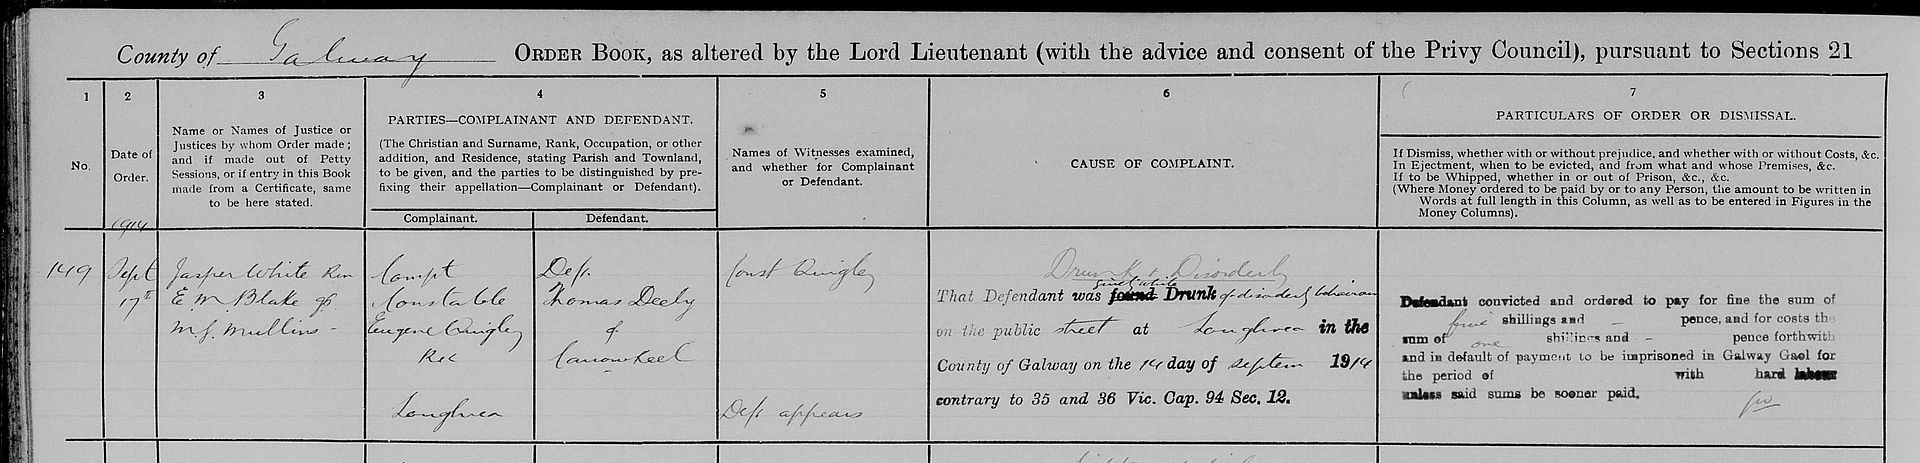 County of Galway ORDER BOOK, as altered by the Lord Lieutenant (with the advice and consent of the Privy Council), pursuant to Sections 21
1
No.
2
Date of
Order.
1914
3
Name or Names of Justice or
Justices by whom Order made;
and if made out of Petty
Sessions, or if entry in this Book
made from a Certificate, same
to be here stated.
4
PARTIES—COMPLAINANT AND DEFENDANT.
(The Christian and Surname, Rank, Occupation, or other
addition, and Residence, stating Parish and Townland,
to be given, and the parties to be distinguished by pre-
fixing their appellation—Complainant or Defendant).
Complainant.
Defendant.
5
Names of Witnesses examined,
and whether for Complainant
or Defendant.
6
CAUSE OF COMPLAINT.
7
PARTICULARS OF ORDER OR DISMISSAL.
If Dismiss, whether with or without prejudice, and whether with or without Costs, &c.
In Ejectment, when to be evicted, and from what and whose Premises, &c.
If to be Whipped, whether in or out of Prison, &c., &c.
(Where Money ordered to be paid by or to any Person, the amount to be written in
Words at full length in this Column, as well as to be entered in Figures in the
Money Columns).
149
Sept
17
Jasper White Rm
E. M. Blake
M. J. Mullins
Compt
Constable
Eugene Quigley
RIC
Loughrea
Def.
Thomas Deely
of
Const Quigley
Deft appears
Drunk & Disorderly
That Defendant was guilty while found Drunk of disorderly behaviour
on the public street at Loughrea in the
County of Galway on the 14 day of Septem 1914
contrary to 35 and 36 Vic. Cap. 94 Sec. 12.
Defendant convicted and ordered to pay for fine the sum of
five shillings and - pence, and for costs the
sum of one shillings and - pence forthwith
and in default of payment to be imprisoned in Galway Gaol for
the period of with hard labour
unless said sums be sooner paid.